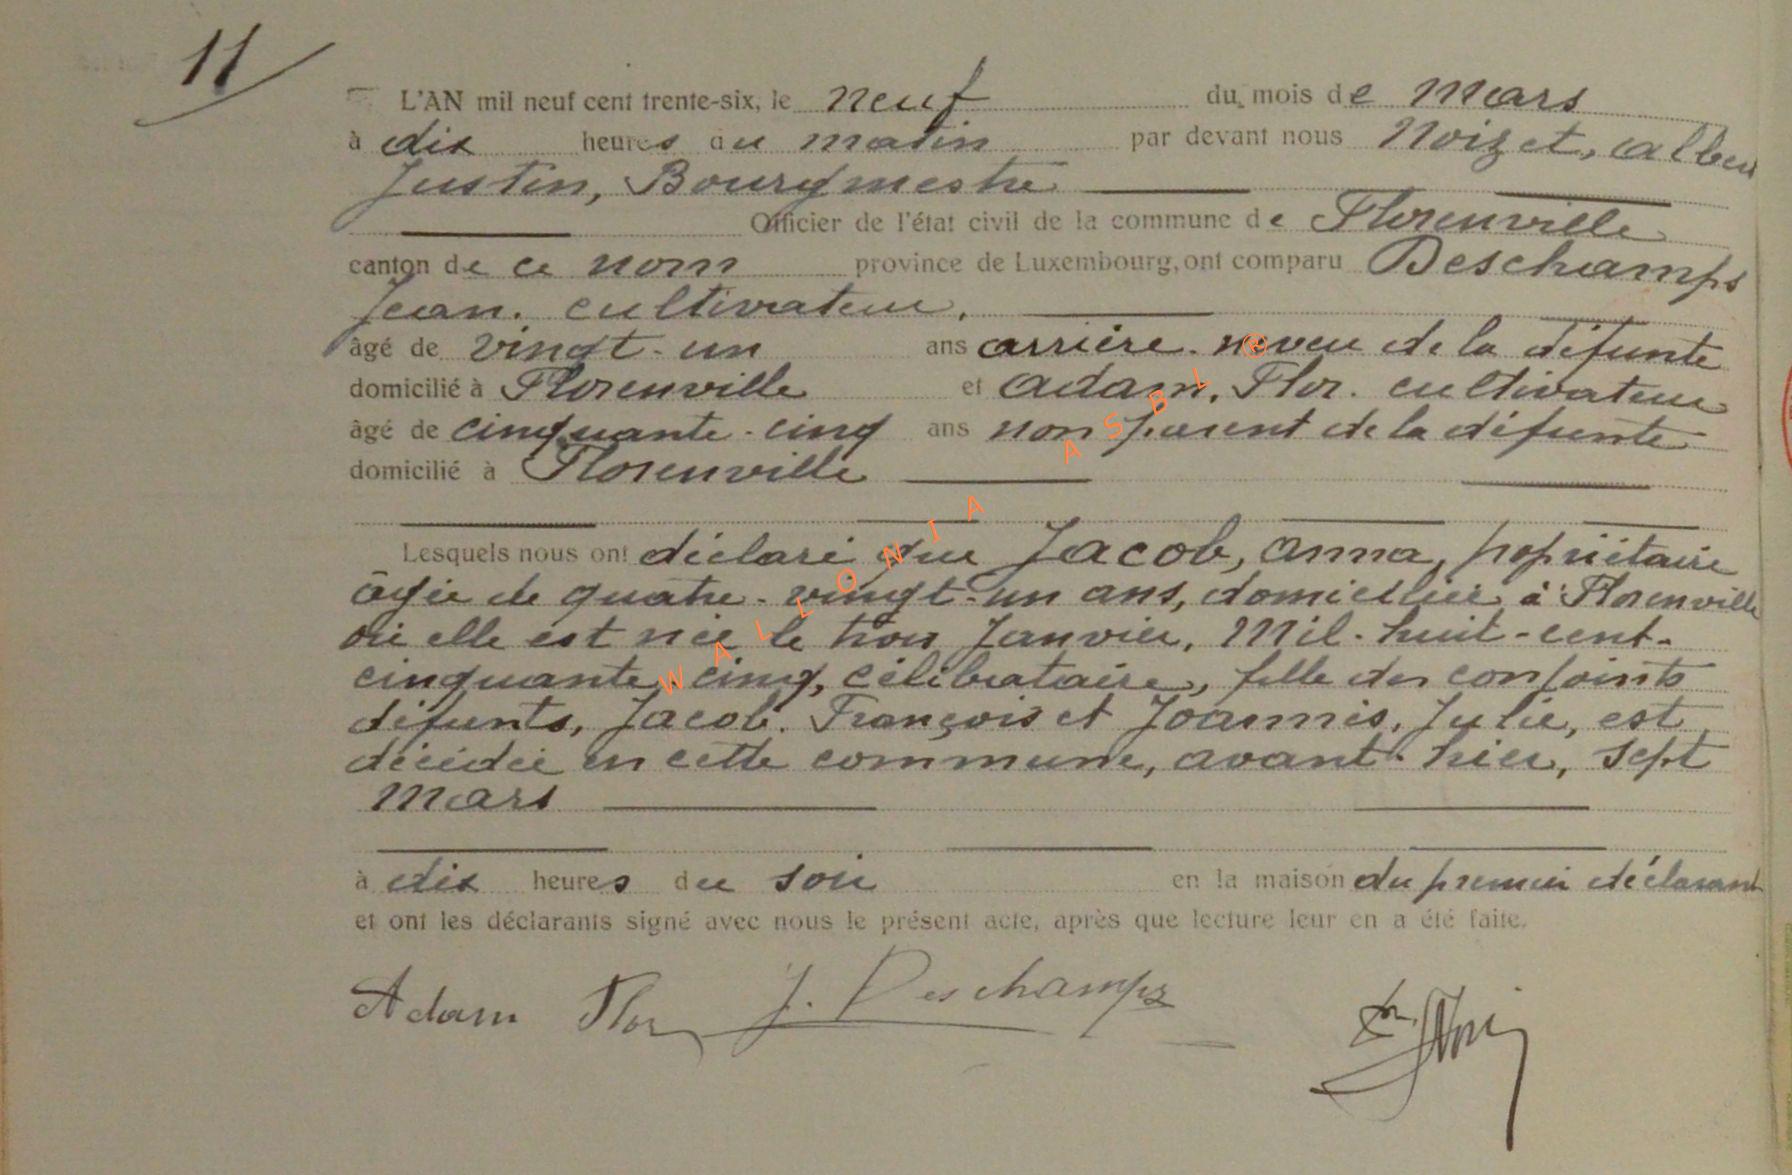 11
L'AN mil neuf cent trente-six, le neuf du mois de Mars
à dix heures du matin par devant nous Noizet, Albert
Justin, Bourgmestre
Officier de l'état civil de la commune de Florenville
canton de ce nom province de Luxembourg, ont comparu Deschamps
Jean. cultivateur,
âgé de vingt-un ans arrière-neveu de la défunte
domicilié à Florenville et Adam, Flor. cultivateur
âgé de cinquante-cinq ans non parent de la défunte
domicilié à Florenville
Lesquels nous ont déclaré que Jacob, Anna, propriétaire
âgée de quatre-vingt-un ans, domiciliée à Florenville
où elle est née le trois Janvier, Mil-huit-cent-
cinquante-cinq, célibataire, fille des conjoints
défunts, Jacob. François et Joannis, Julie, est
décédée en cette commune, avant-hier, sept
Mars
à dix heures du soir en la maison du premier déclarant
et ont les déclarants signé avec nous le présent acte, après que lecture leur en a été faite.
Adam Flor J. Deschamps
WALLONIA ASBL ®